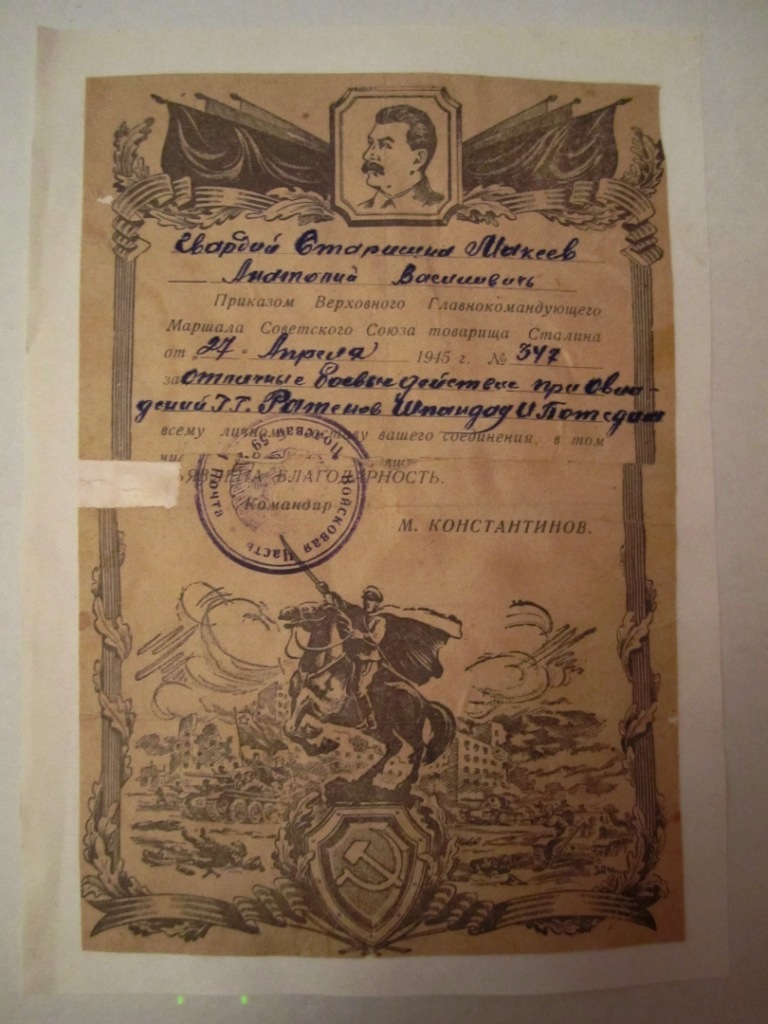 Гвардии Старшина Макеев
Анатолий Васильевичь
Приказом Верховного Главнокомандующего
Маршала Советского Союза товарища Сталина
от 27 - Апреля 1945 г. № 347
за отличные боевые действие при Овла-
дений Г.Г. Ратенов Шпандау и Потсдам
всему личному составу вашего соединения, в том
чис
ЯВЛЕНА БЛАГОДАРНОСТЬ.
Командир
М. КОНСТАНТИНОВ.
Войсковая Часть Полевая Почта